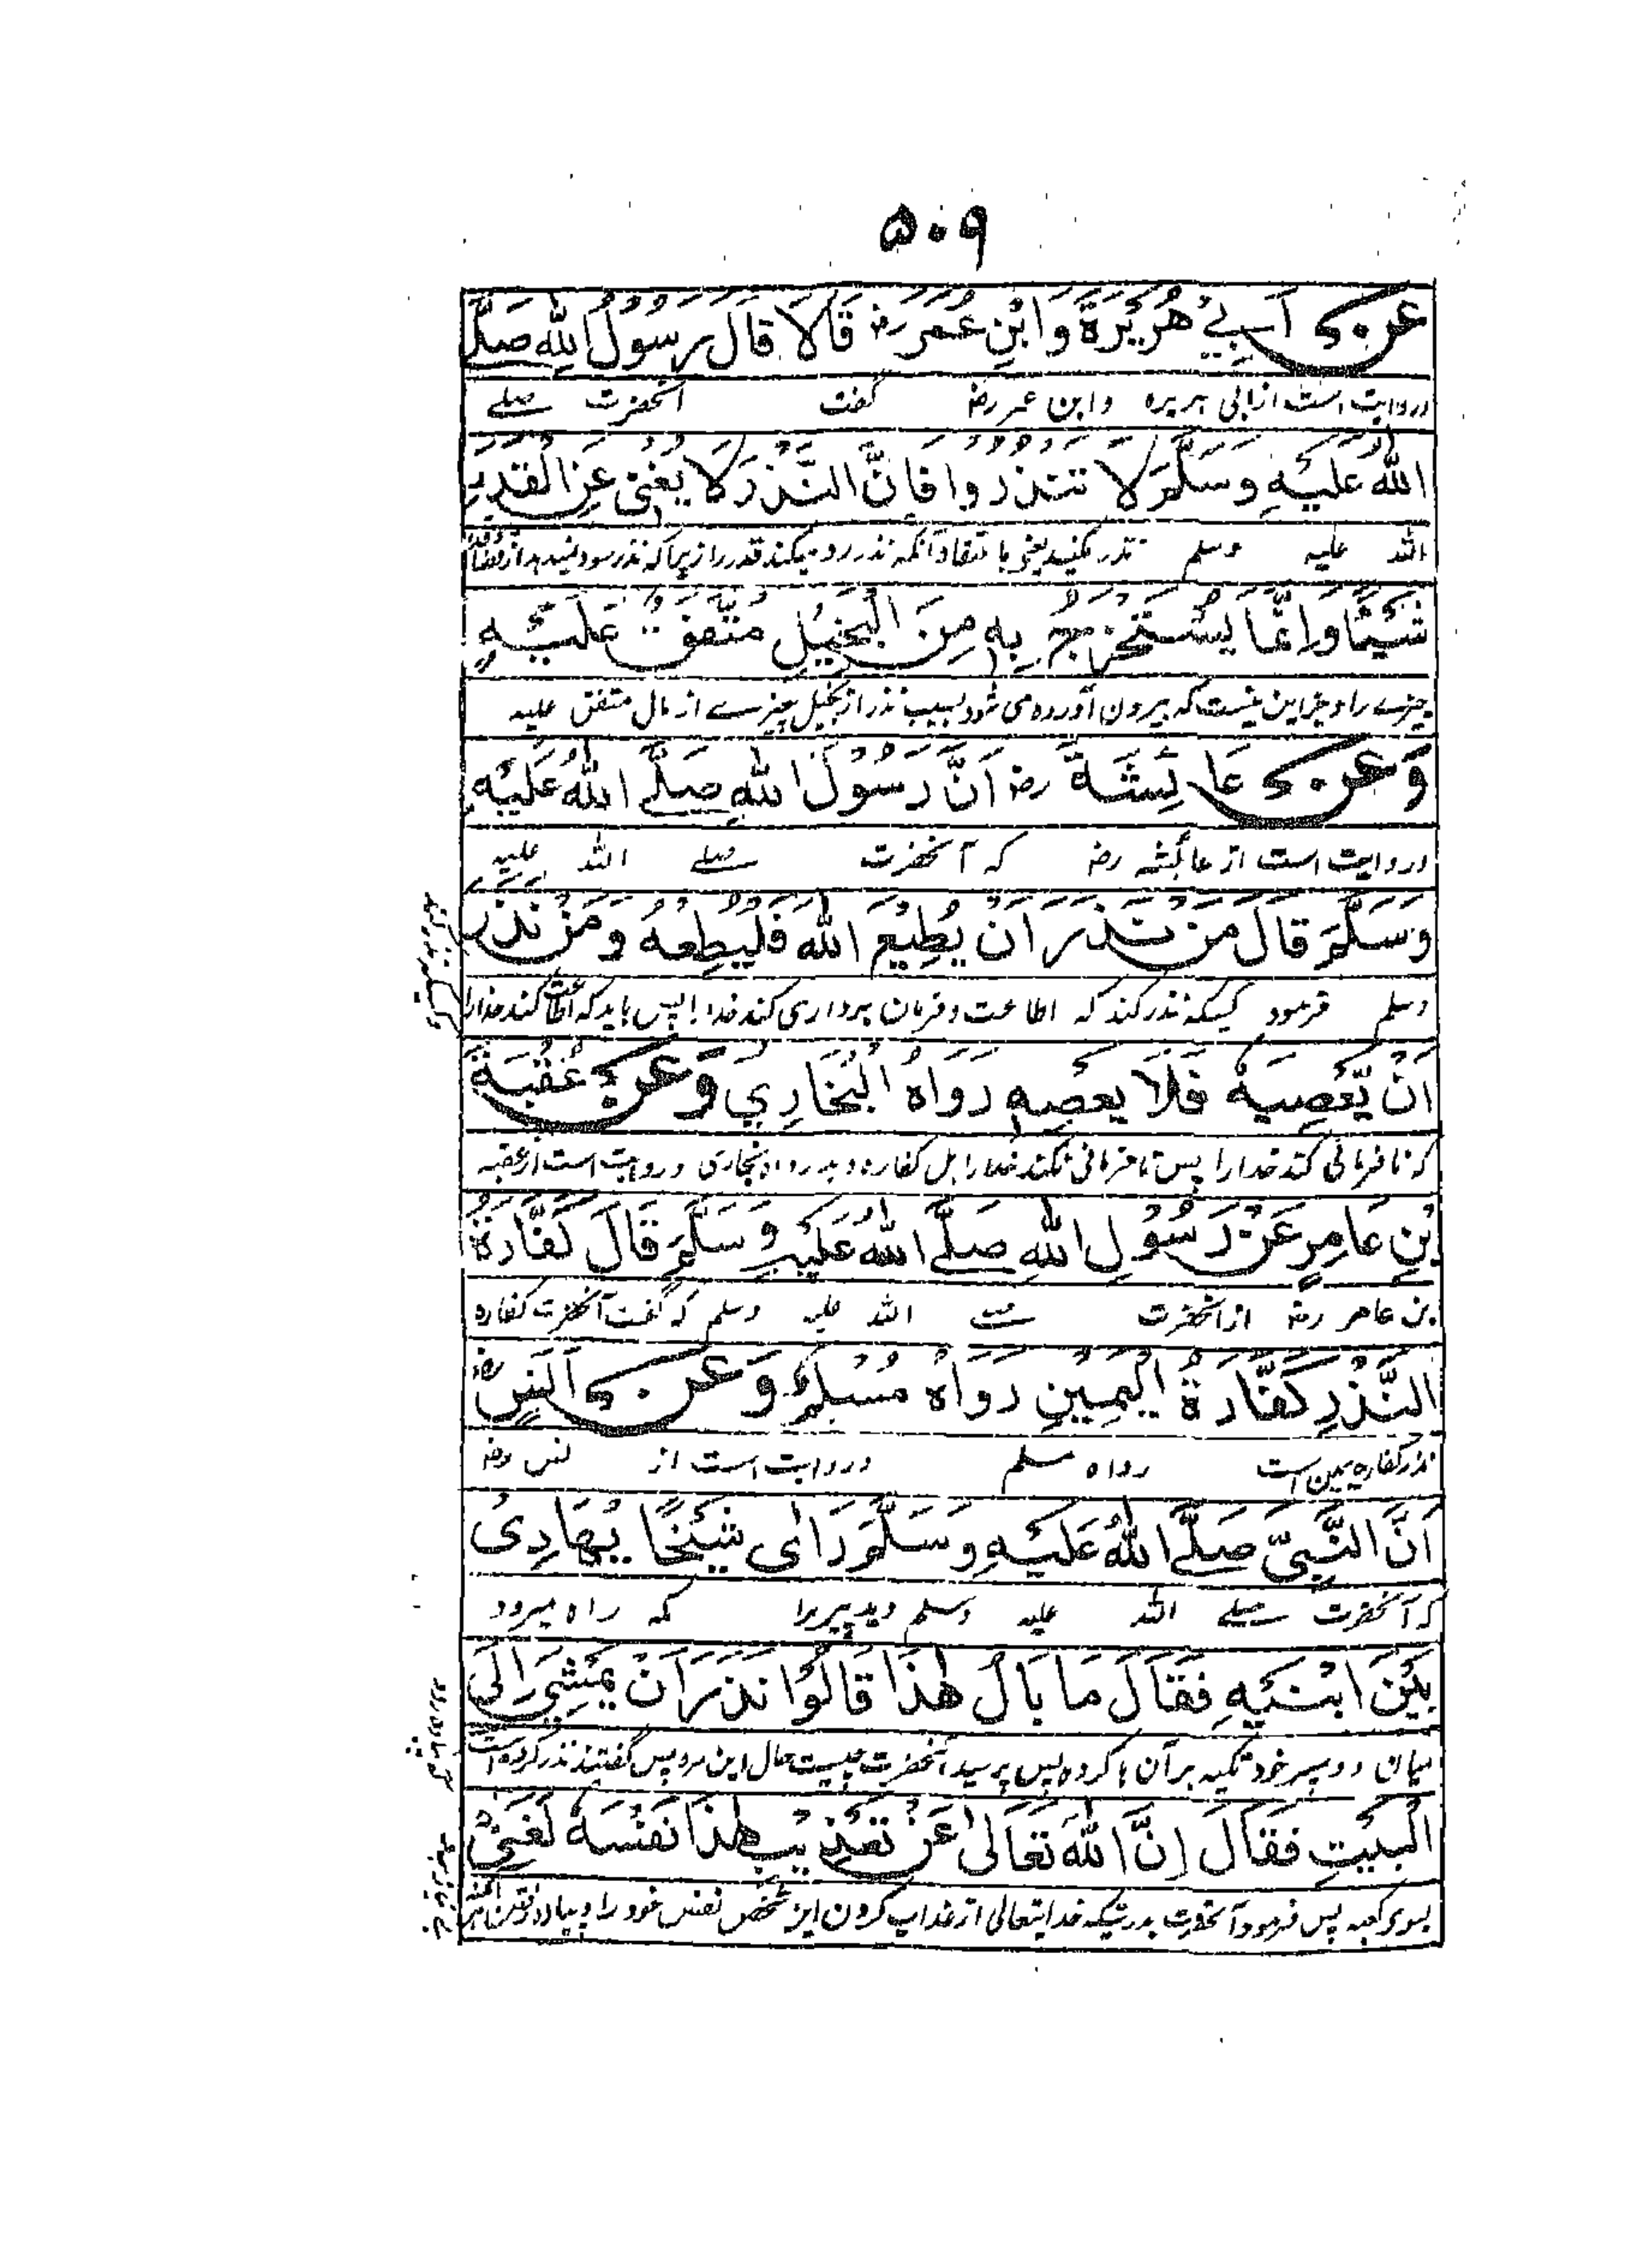 ۵۰۹
عَنْ اَبِيْ هُرَيْرَةَ وَابْنِ عُمَرَ رض قَالَا قَالَ رَسُوْلُ اللهِ صَلَّے
وروایت است از ابی هریره وابن عمر رض گفت آنحضرت صلے
اللهُ عَلَيْهِ وَسَلَّمَ لَا تَنْذُرُوا فَاِنَّ النَّذْرَ لَا يُغْنِي عَنِ الْقَدَرِ
الله علیه وسلم نذر مکنید یعنی با عتقاد آنکه نذر رد میکند قدر را زیرا که نذر سود نمیدهد از قضا
شَيْئًا وَاِنَّمَا يُسْتَخْرَجُ بِهِ مِنَ الْبَخِيْلِ مُتَّفَقٌ عَلَيْهِ
چیزے را وجز این نیست که بیرون آورده می شود بسبب نذر از بخیل چیزے از مال متفق علیه
وَعَنْ عَائِشَةَ رض اَنَّ رَسُوْلَ اللهِ صَلَّے اللهُ عَلَيْهِ
وروایت است از عائشه رض که آنحضرت صلے الله علیه
وَسَلَّمَ قَالَ مَنْ نَذَرَ اَنْ يُطِيْعَ اللهَ فَلْيُطِعْهُ وَمَنْ نَذَرَ
وسلم فرمود کسیکه نذر کند که اطاعت و فرمان برداری کند خدا را پس باید که اطاعت کند خدارا
اَنْ يَّعْصِيَهُ فَلَا يَعْصِهِ رَوَاهُ الْبُخَارِيُّ وَعَنْ عُقْبَةَ
که نافرمانی کند خدا را پس نافرمانی نکند خدا را بل کفاره دهد رواه بخاری وروایت است از عقبه
بْنِ عَامِرٍ عَنْ رَسُوْلِ اللهِ صَلَّے اللهُ عَلَيْهِ وَسَلَّمَ قَالَ كَفَّارَةُ
بن عامر رض از آنحضرت الله علیه وسلم که گفت آنحضرت کفاره
النَّذْرِ كَفَّارَةُ الْيَمِيْنِ رَوَاهُ مُسْلِمٌ وَعَنْ اَنَسٍ رض
نذر کفاره یمین است رواه مسلم وروایت است از انس رض
اَنَّ النَّبِيَّ صَلَّے اللهُ عَلَيْهِ وَسَلَّمَ رَاٰى شَيْخًا يُهَادِىْ
که آنحضرت صلے الله علیه وسلم دید پیرے را که راه میرود
بَيْنَ ابْنَيْهِ فَقَالَ مَا بَالُ هٰذَا قَالُوْا نَذَرَ اَنْ يَمْشِيَ اِلَى
میان دو پسر خود تکیه بر آن ها کرده پس پرسید آنحضرت چیست حال این مرد پس گفتند نذر کرده است
الْبَيْتِ فَقَالَ اِنَّ اللهَ تَعَالٰى عَنْ تَعْذِيْبِ هٰذَا نَفْسَهُ لَغَنِيٌّ
بسوی کعبه پس فرمود آنحضرت بدرستیکه خدایتعالی از عذاب کردن این شخص نفس خود را